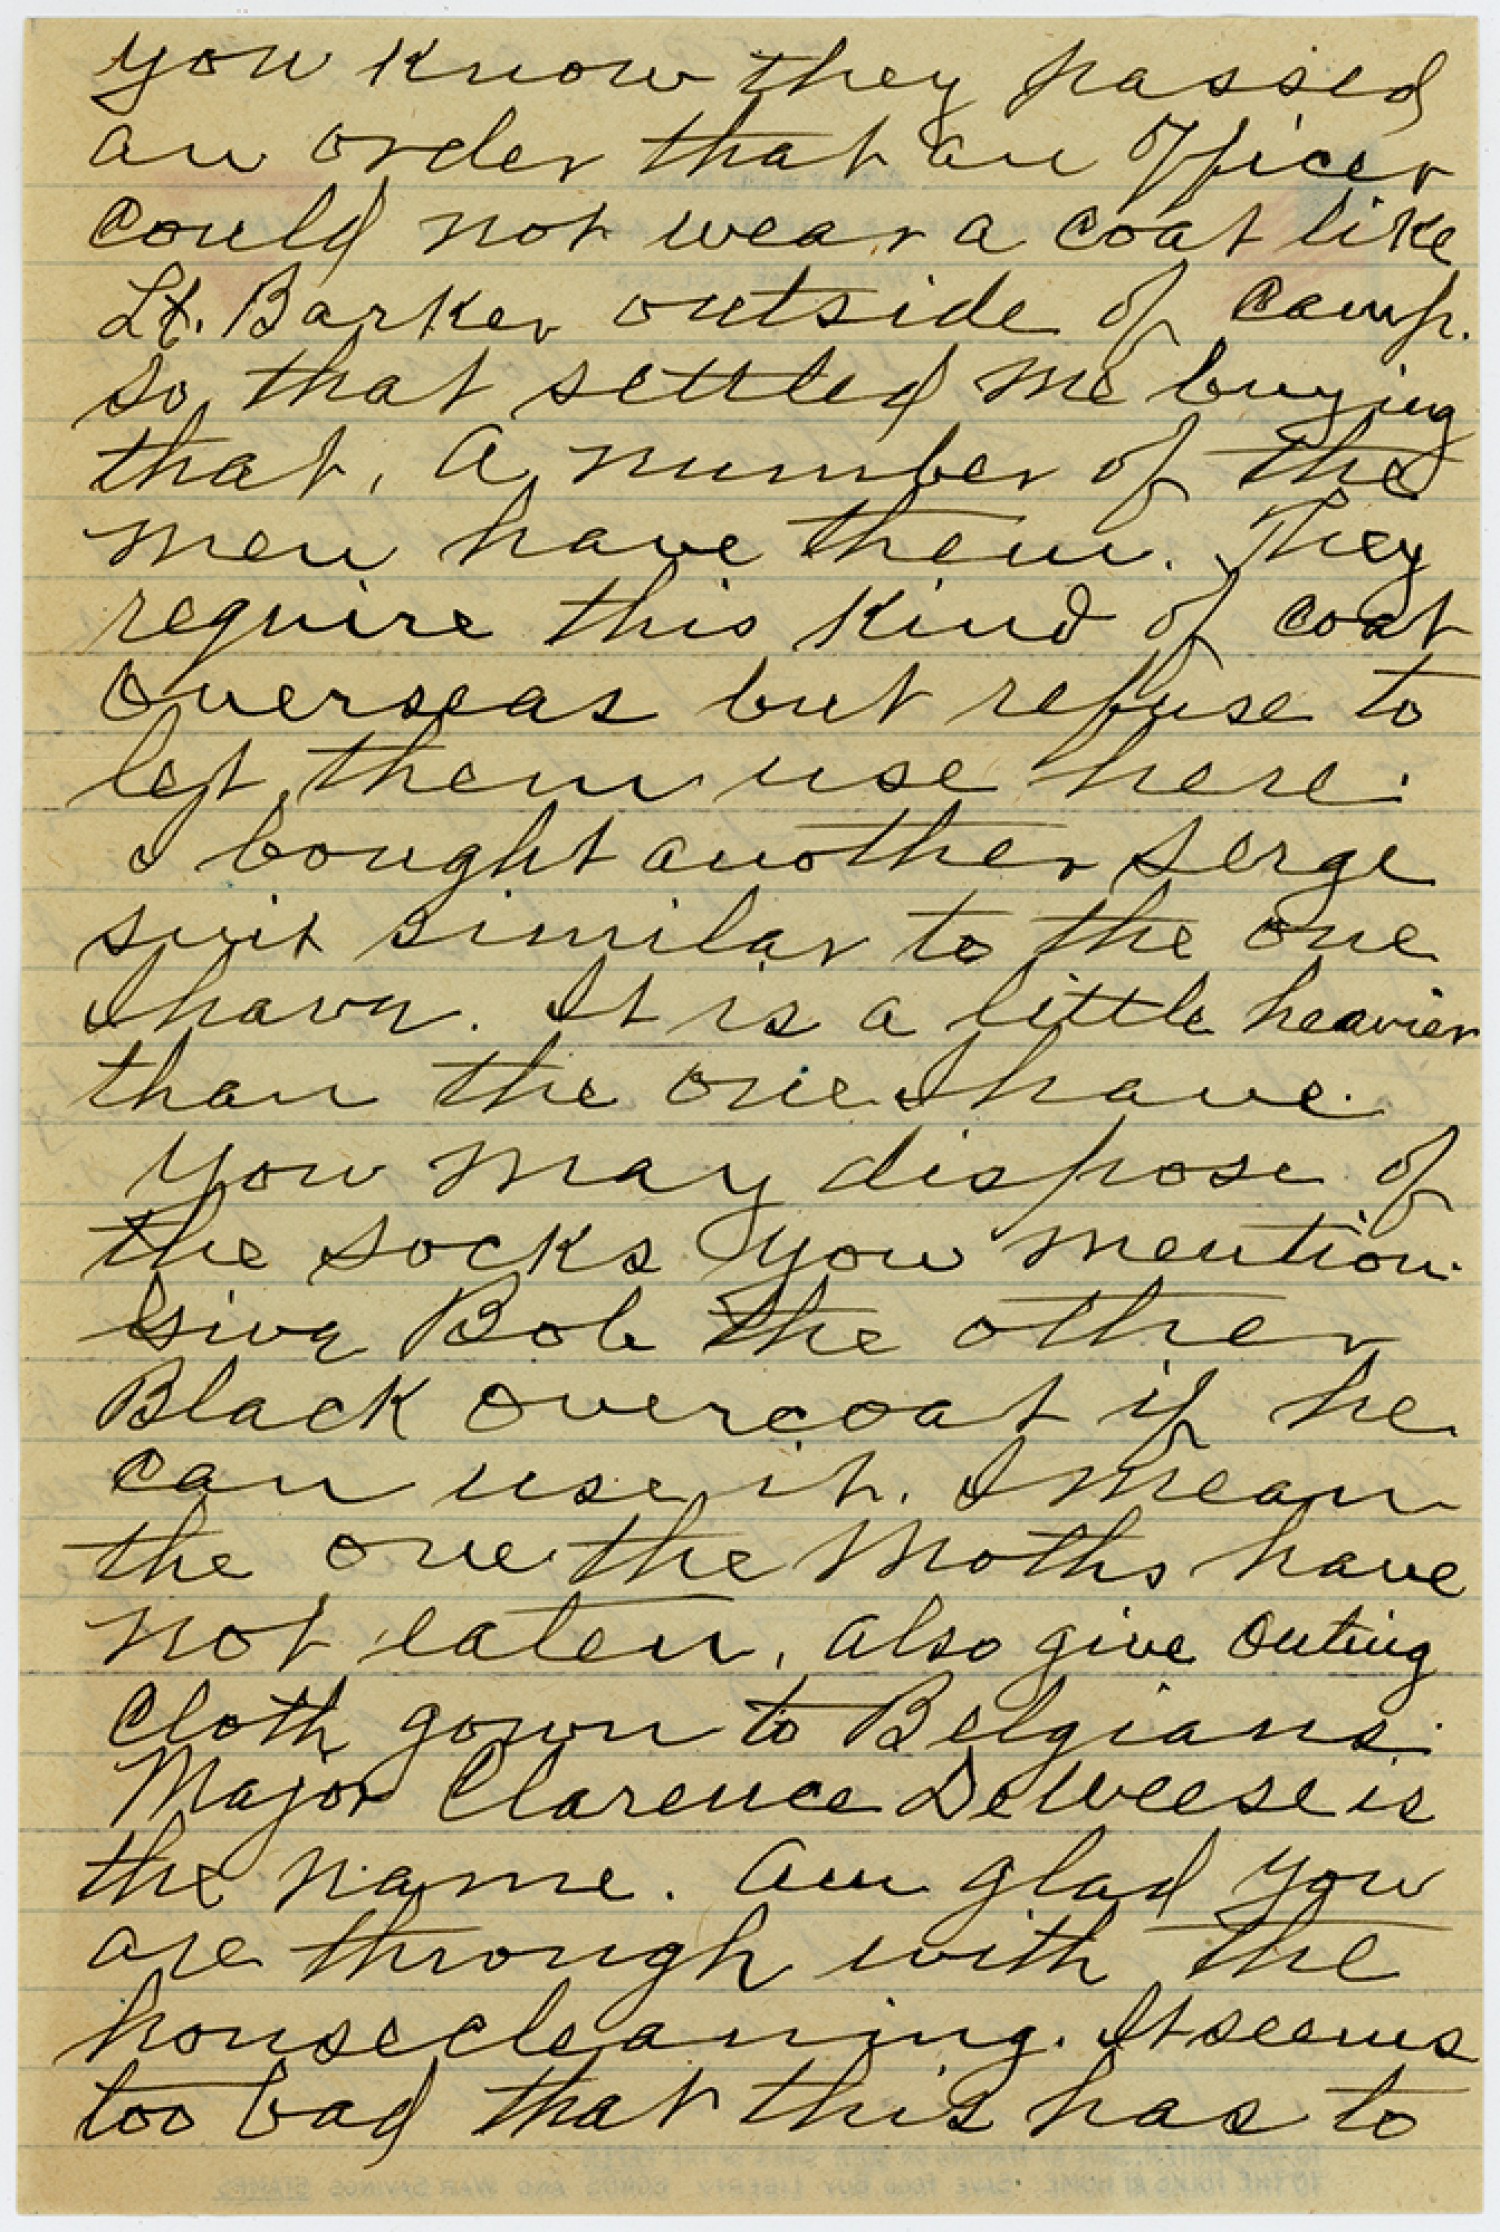 you know they passed
an order that an officer
could not wear a coat like
Lt. Barker outside of camp.
so that settled me buying
that. A number of the
men have them. They
require this kind of coat
overseas but refuse to
let them use here.
I bought another serge
suit similar to the one
I have. It is a little heavier
than the one I have.
You may dispose of
the socks you mention.
Give Bob the other
Black overcoat if he
can use it. I mean
the one the moths have
not eaten. also give outing
cloth gown to Belgians.
Major Clarence DeWeese is
the name. Am glad you
are through with the
housecleaning. It seems
too bad that this has to